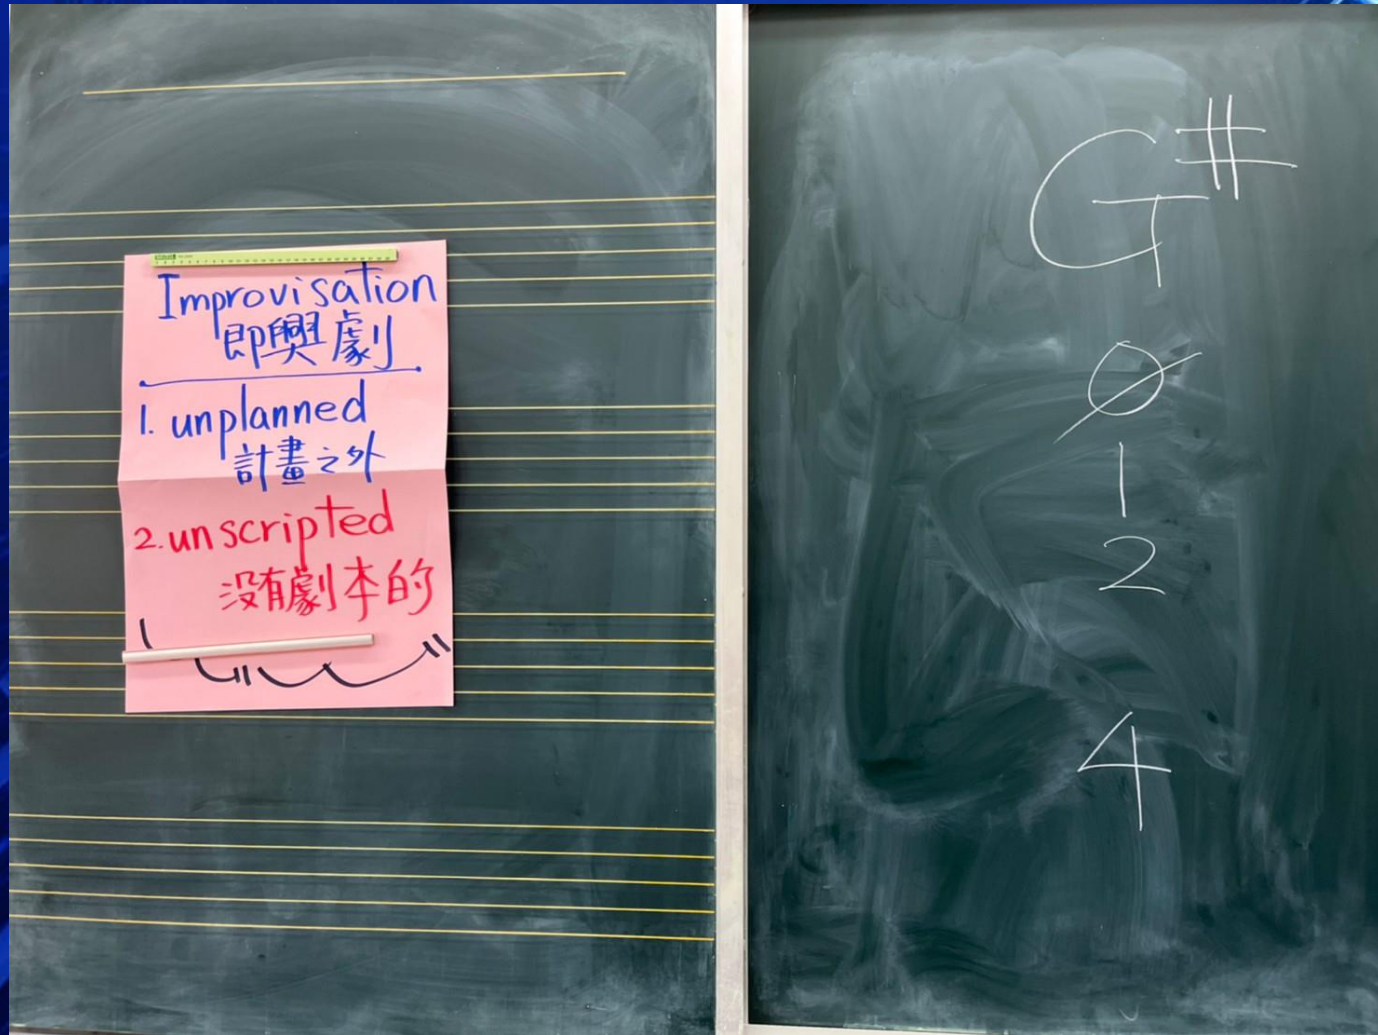 Improvisation
即興劇
1. unplanned
計畫之外
2. unscripted
没有劇本的
G#
0
1
2
4